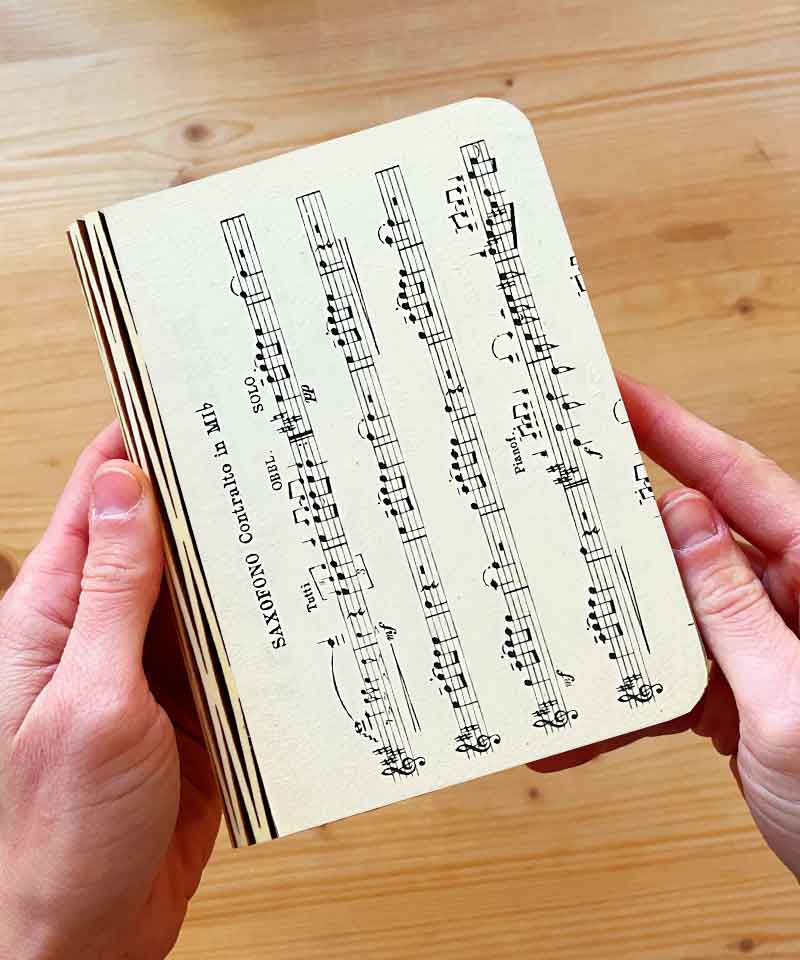 SAXOFONO Contralto in MI♭
Tutti OBBL. SOLO.
mf pp
mf
Pianof.
f